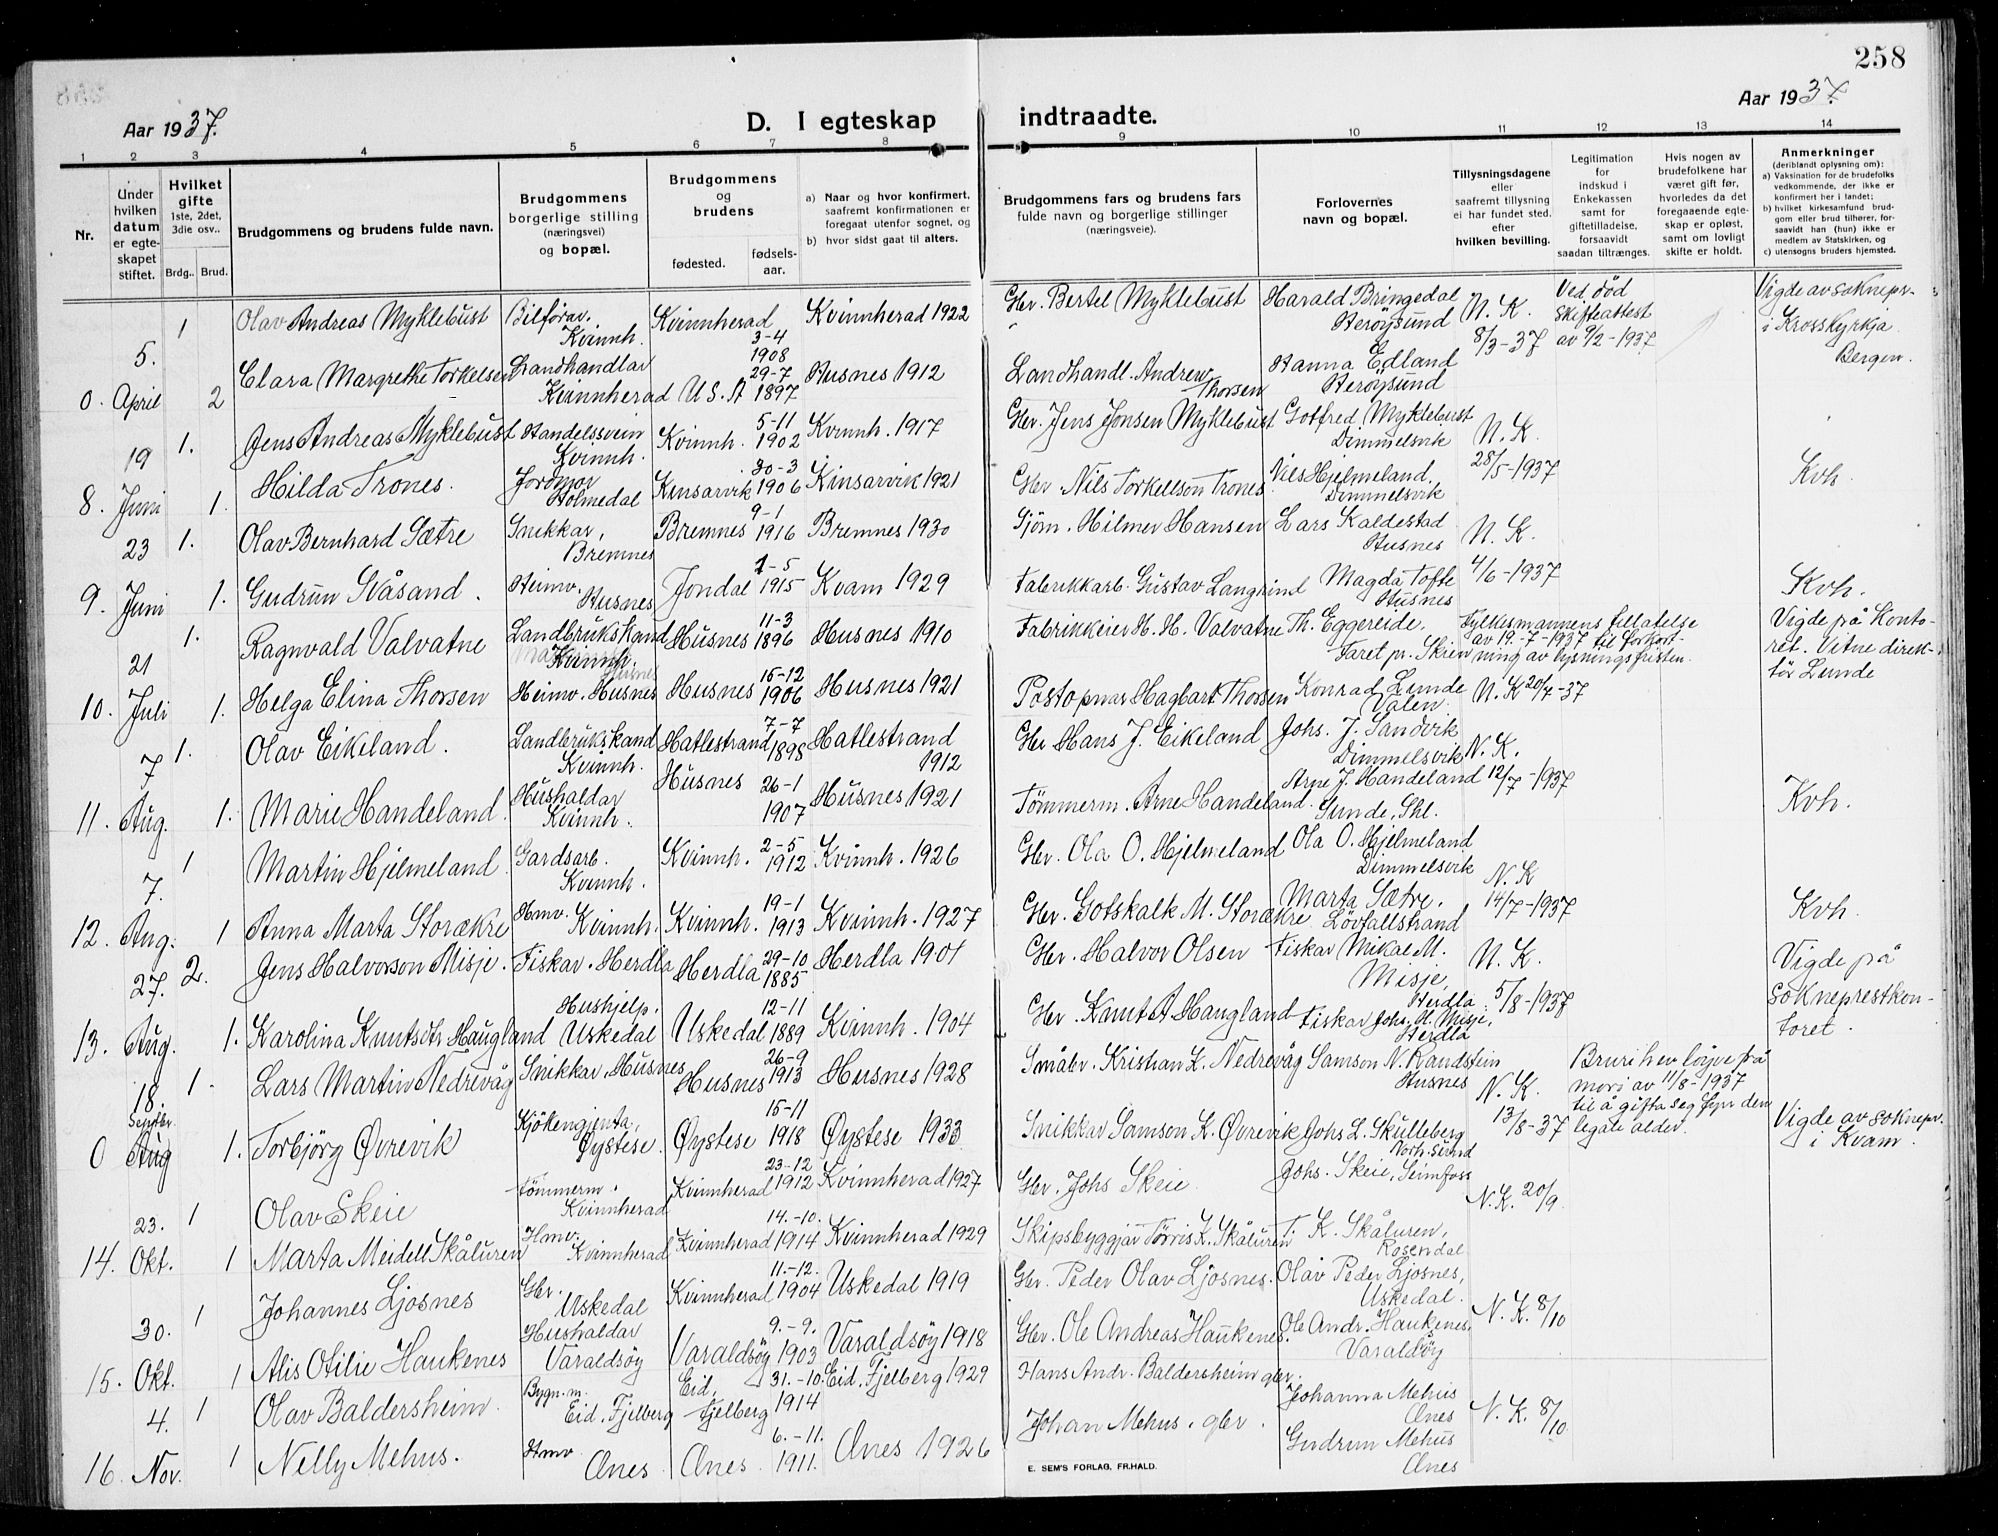 258
Aar 1937.
D. I egteskap indtraadte.
Aar 1937.
1 2 3 4 5 6 7 8 9 10 11 12 13 14
Nr.
Under hvilken datum er egteskapet stiftet.
Hvilket gifte 1ste, 2det, 3die osv..
Brdg.. Brud.
Brudgommens og brudens fulde navn.
Brudgommens borgerlige stilling (næringsvei) og bopæl.
Brudgommens og brudens
fødested. fødselsaar.
a) Naar og hvor konfirmert, saafremt konfirmationen er foregaat utenfor sognet, og
b) hvor sidst gaat til alters.
Brudgommens fars og brudens fars fulde navn og borgerlige stillinger (næringsveie).
Forlovernes navn og bopæl.
Tillysningsdagene eller saafremt tillysning ei har fundet sted. efter hvilken bevilling.
Legitimation for indskud i Enkekassen samt for giftetilladelse, forsaavidt saadan tiltrænges.
Hvis nogen av brudefolkene har været gift før, hvorledes da det foregaaende egteskap er opløst, samt om lovligt skifte er holdt.
Anmerkninger (deriblandt oplysning om):
a) Vaksination for de brudefolks vedkommende, der ikke er konfirmert her i landet;
b) hvilket kirkesamfund brudgom eller brud tilhører, forsaavidt han (hun) ikke er medlem av Statskirken, og
c) utensogns bruders hjemsted.
5. 1 Olav Andreas Myklebust Bilførar, Kvinnh. Kvinnherad 3-4 1908 Kvinnherad 1922 Gbr. Bertel Myklebust Harald Bringedal Herøysund N. K. 8/3-37 Ved død skifteattest av 9/2-1937 Vigde av sokneprr. i Krosskyrkja Bergen.
0. April 2 Clara Margrethe Torkelsen Landhandlar Kvinnherad U S. A 29-7 1897 Husnes 1912 Landhandl. Andrew Thorsen Hanna Edland Herøysund
19 1. Jens Andreas Myklebust Handelssvein Kvinnh. Kvinnh. 5-11 1902 Kvinnh. 1917 Gbr. Jens Jonsen Myklebust Gotfred Myklebust Dimmelsvik N. K. 28/5-1937
8. Juni 1. Hilda Trones. Jordmor Holmedal Kinsarvik 30-3 1906 Kinsarvik 1921 Gbr. Nils Torkellson Trones Nils Hjelmeland, Dimmelsvik Kvh.
23 1. Olav Bernhard Sætre Snikkar, Bremnes Bremnes 9-1 1916 Bremnes 1930 Sjøm. Hilmer Hansen Lars Kaldestad Husnes N. K.
9. Juni 1. Gudrun Svåsand. Heimv. Husnes Jondal 1-5 1915 Kvam 1929 Fabrikkarb. Gustav Langrind Magda Tofte Husnes 4/6-1937 Kvh.
21 1. Ragnvald Valvatne Landbrukskand Kvinnh. Husnes Husnes 11-3 1896 Husnes 1910 Fabrikkeier H. H. Valvatne Th. Eggereide, Faret pr. Skien Fylkesmannens tillatelse av 19.-7-1937 til forkortning av lysningsfristen. Vigde på Kontoret. Vitne direktør Lunde
10. Juli 1. Helga Elina Thorsen Heimv. Husnes Husnes 15-12 1906 Husnes 1921 Postopnar Hagbart Thorsen Konrad Lunde Valen N. K 20/7-37
7 1. Olav Eikeland. Landbrukskand Kvinnh. Hatlestrand 7-7 1898 Hatlestrand 1912 Gbr Hans J. Eikeland Johs. J. Sandvik Dimmelsvik N. K.
11. Aug. 1. Marie Handeland. Hushaldar Kvinnh. Husnes 26-1 1907 Husnes 1921 Tømmerm. Arne Handeland. Arne J. Handeland Sunde, Shl. 12/7-1937 Kvh.
7. 1 Martin Hjelmeland Gardsarb. Kvinnh. Kvinnh. 2-5 1912 Kvinnh. 1926 Gbr. Ola O. Hjelmeland Ola O. Hjelmeland Dimmelsvik N. K
12. Aug. 1 Anna Marta Storækre Hmv. Kvinnh. Kvinnh. 19-1 1913 Kvinnh. 1927 Gbr. Gotskalk M. Storækre Marta Sætre, Løvfallstrand 14/7-1937 Kvh.
27. 2. Jens Halvorson Misje. Fiskar. Herdla Herdla 29-10 1885 Herdla 1901 Gbr. Halvor Olsen Fiskar Mikal M. Misje, Herdla N. K. Vigde på sokneprestkontoret.
13. Aug. 1. Karolina Knutsdtr Haugland Hushjelp. Uskedal Uskedal 12-11 1889 Kvinnh. 1904 Gbr. Knut A Haugland Fiskar Johs. M. Misje, Herdla 5/8-1937
18. 1. Lars Martin Nedrevåg Snikkar, Husnes Husnes 26-9 1913 Husnes 1928 Småbr. Kristian L. Nedrevåg Samson N. Randstein Husnes N. K. Bruri hev løyve frå mori av 11/8-1937 til å gifta seg fyr den legale alder.
0 Septbr. Aug 1. Torbjörg Øvrevik Kjøkengjenta, Øystese. Øystese 15-11 1918 Øystese 1933 Snikkar Samson K. Øvrevik Johs L. Skulleberg 13/8-37 Vigde av soknepr. i Kvam.
23. 1 Olav Skeie Tømmerm. Kvinnherad Kvinnherad 23-12 1912 Kvinnherad 1927 Gbr. Johs Skeie. Johs. Skeie, Seimfoss N. K. 20/9
14. Okt. 1 Marta Meidell Skåluren Hmv. Kvinnherad Kvinnherad 14.-10. 1914 Kvinnherad 1929 Skipsbyggjar Tørris K. Skåluren T. K. Skåluren, Rosendal
30. 1 Johannes Ljosnes Gbr. Uskedal Kvinnherad 11.-12. 1904 Uskedal 1919 Gbr. Peder Olav Ljosnes. Olav Peder Ljosnes, Uskedal. N. K. 8/10
15. Okt. 1 Alis Otilie Haukenes Hushaldar Varaldsøy Varaldsøy 9.-9. 1903 Varaldsøy 1918 Gbr. Ole Andreas Haukenes. Ole Andr. Haukenes, Varaldsøy
4. 1 Olav Baldersheim. Bygn.m. Eid. Fjelberg Eid, Fjelberg 31.-10. 1914 Eid. Fjelberg 1929 Hans Andr. Baldersheim gbr. Johanna Mehus Ænes N. K. 8/10.
16. Nov. 1 Nelly Mehus. Hmv Ænes. Ænes. 6.-11. 1911. Ænes 1926 Johan Mehus. gbr. Gudrun Mehus Ænes
E. SEM'S FORLAG, FR.HALD.